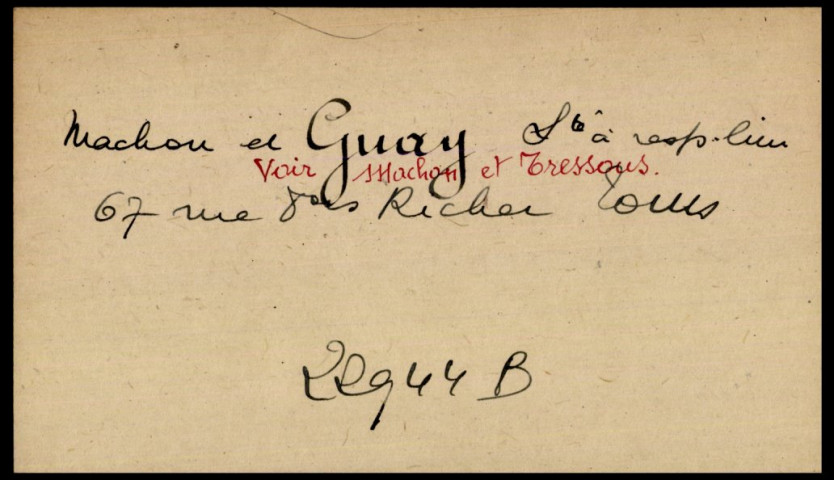 Machon et Guay Sté à resp. lim
Voir Machon et Tressous.
67 rue Frs Richer Tours
22944 B